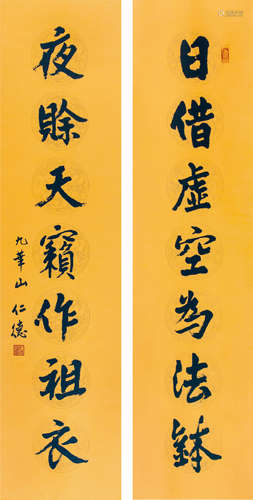 日借虛空為法鉢
夜賒天籟作祖衣
九華山 仁德